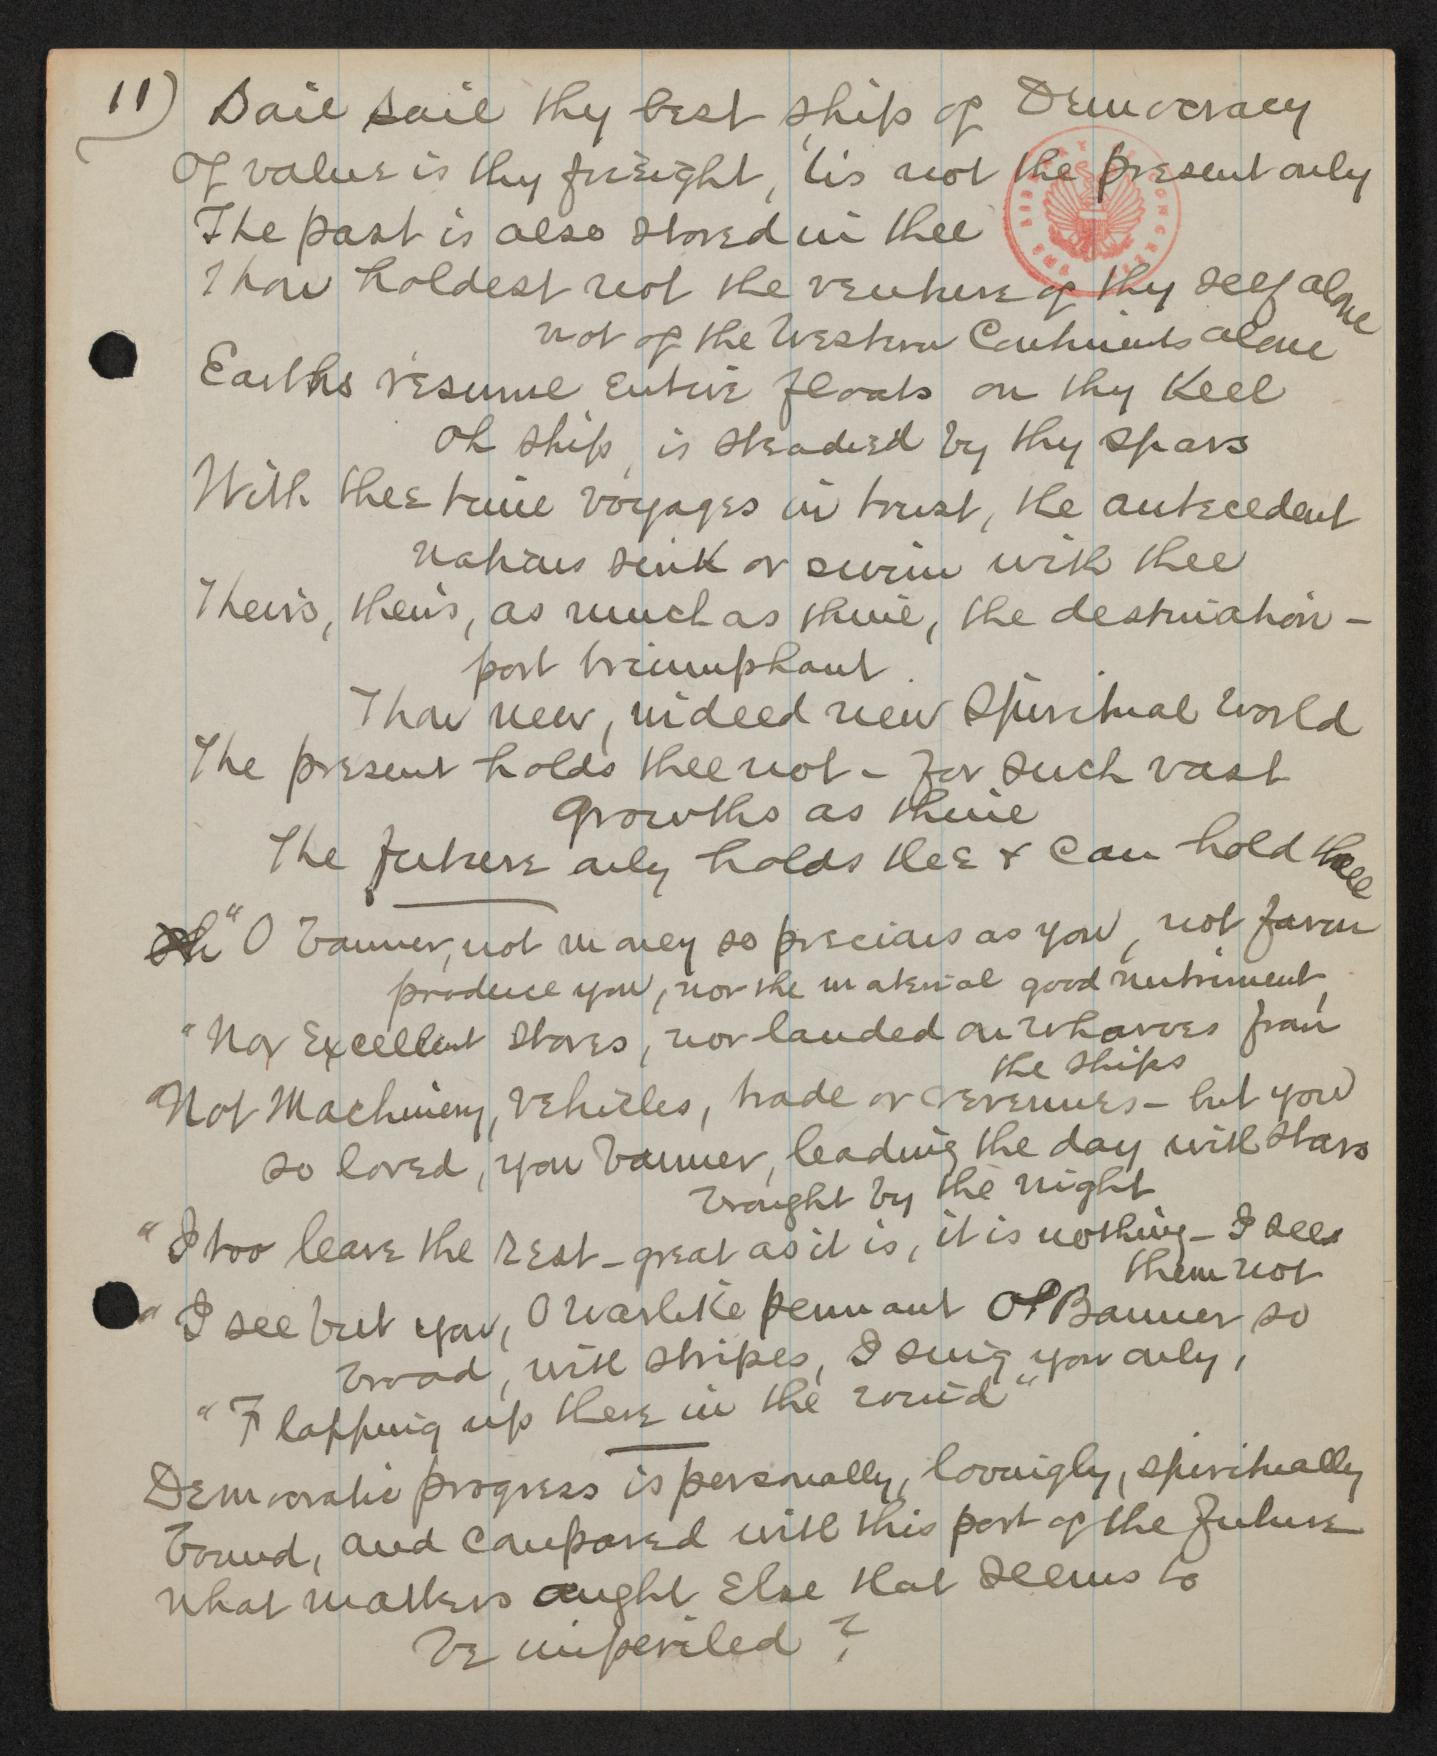 11) Sail sail thy best ship of Democracy
Of value is thy freight, 'tis not the present only
The past is also stored in thee
Thou holdest not the venture of thy self alone
not of the Western Continents alone
Earths résumé entire floats on thy Keel
Oh ship, is steadied by thy spars
With thee time voyages in trust, the antecedent
nations sink or swim with thee
Theirs, theirs, as much as thine, the destination -
port triumphant.
Thou new, indeed new Spiritual World
The present holds thee not - for such vast
growths as thine
The future only holds thee & can hold thee
Oh "O banner, not money so precious as you, not farm
produce you, nor the material good nutriment,
"Nor Excellent stores, nor landed on wharves from
the ships
"Not Machinery, vehicles, trade or revenues - but you
so loved, you banner, leading the day with stars
brought by the night
"I too leave the rest - great as it is, it is nothing - I see
them not
"I see but you, O warlike pennant O Banner so
broad, with stripes, I sing you only,
"Flapping up there in the wind"
Democratic progress is personally, lovingly, spiritually
bound, and compared with this port of the future
what matters aught Else that seems to
be imperiled ?